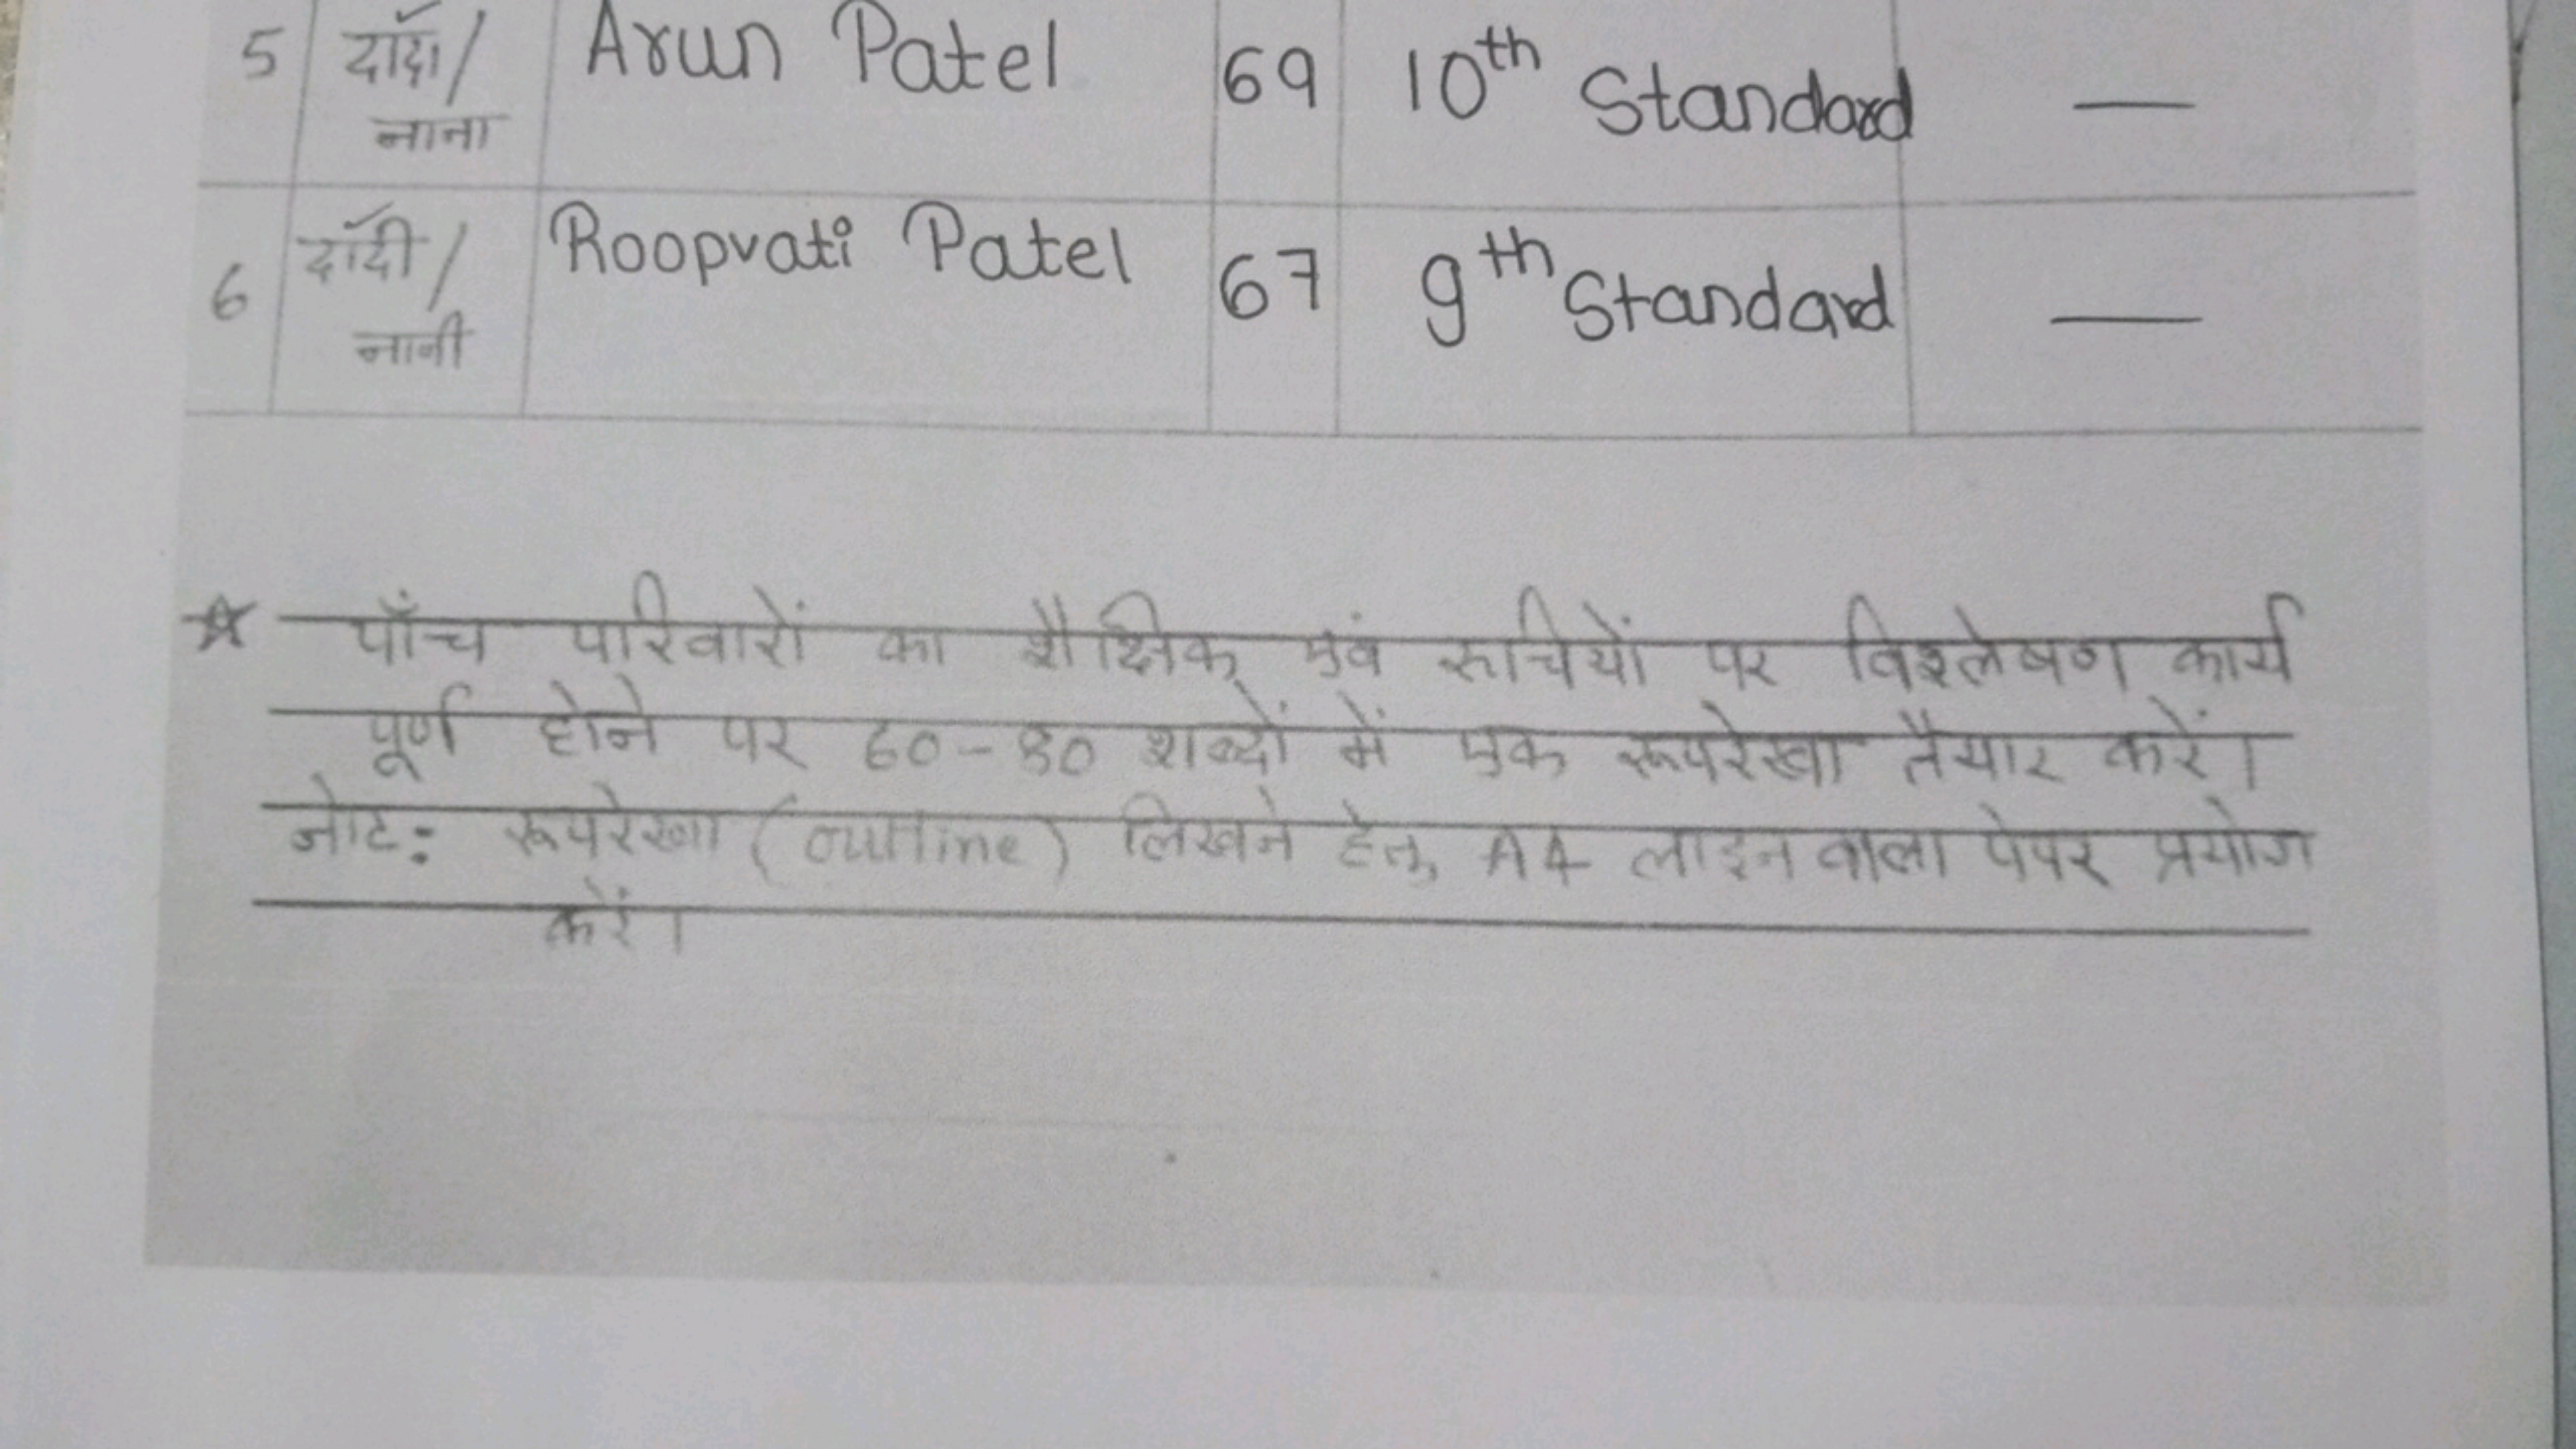 5 दादा/ Arun Patel 69 10th Standard —
नाना
6 दादी/ Roopvati Patel 67 9th Standard —
नानी
☆ पाँच परिवारों का शैक्षिक एवं रुचियों पर विश्लेषण कार्य
पूर्ण होने पर 60-80 शब्दों में एक रूपरेखा तैयार करें।
नोट: रूपरेखा (outline) लिखने हेतु A4 लाइन वाला पेपर प्रयोग
करें।